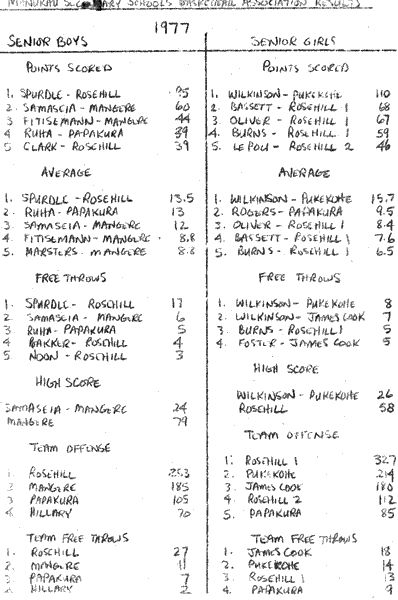 MANUKAU SECONDARY SCHOOLS BASKETBALL ASSOCIATION RESULTS
1977
SENIOR BOYS
POINTS SCORED
1. SPURDLE - ROSEHILL
2. SAMASEIA - MANGERE 60
3. FITISEMANN - MANGERE 44
4. RUHA - PAPAKURA 39
5. CLARK - ROSEHILL 39
AVERAGE
1. SPURDLE - ROSEHILL 13.5
2. RUHA - PAPAKURA 13
3. SAMASEIA - MANGERE 12
4. FITISEMANN - MANGERE 8.8
5. MARSTERS - MANGERE 8.8
FREE THROWS
1. SPURDLE - ROSEHILL 17
2. SAMASEIA - MANGERE 6
3. RUHA - PAPAKURA 5
4. BAKKER - ROSEHILL 4
5. NOON - ROSEHILL 3
HIGH SCORE
SAMASEIA - MANGERE 24
MANGERE 79
TEAM OFFENSE
1. ROSEHILL
2. MANGERE 185
3. PAPAKURA 105
4. HILLARY 70
TEAM FREE THROWS
1. ROSEHILL 27
2. MANGERE 11
3. PAPAKURA 7
4. HILLARY 2
SENIOR GIRLS
POINTS SCORED
1. WILKINSON - PUKEKOHE 110
2. BASSETT - ROSEHILL 1 68
3. OLIVER - ROSEHILL 1 67
4. BURNS - ROSEHILL 1 59
5. LE POU - ROSEHILL 2 46
AVERAGE
1. WILKINSON - PUKEKOHE 15.7
2. ROGERS - PAPAKURA 9.5
3. OLIVER - ROSEHILL 1 8.4
4. BASSETT - ROSEHILL 1 7.6
5. BURNS - ROSEHILL 1 6.5
FREE THROWS
1. WILKINSON - PUKEKOHE 8
2. WILKINSON - JAMES COOK 7
3. BURNS - ROSEHILL 1 5
4. FOSTER - JAMES COOK 5
HIGH SCORE
WILKINSON - PUKEKOHE 26
ROSEHILL 58
TEAM OFFENSE
1. ROSEHILL 1 327
2. PUKEKOHE 214
3. JAMES COOK 180
4. ROSEHILL 2 112
5. PAPAKURA 85
TEAM FREE THROWS
1. JAMES COOK 18
2. PUKEKOHE 14
3. ROSEHILL 1 13
4. PAPAKURA 9